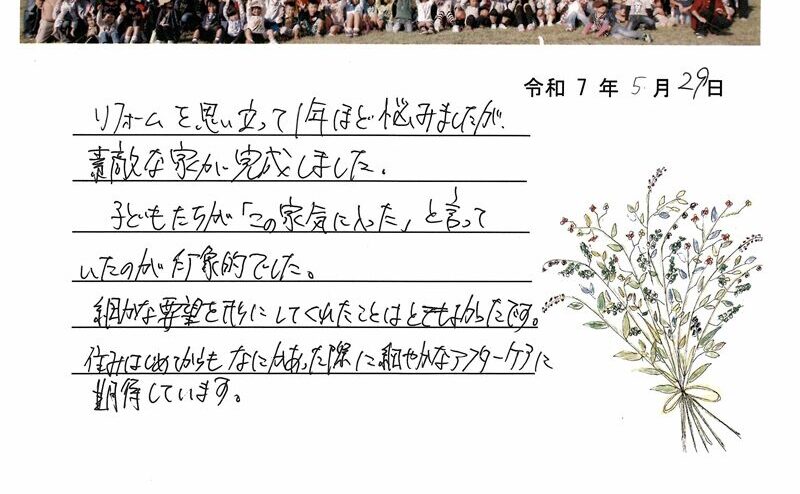 令和 7 年 5 月 29日
リフォームを思い立って1年ほど悩みましたが、
素敵な家が完成しました。
子どもたちが「この家気に入った」と言って
いたのが印象的でした。
細かな要望を形にしてくれたことはとてもよかったです。
住みはじめてからもなにかあった際に細やかなアフターケアに
期待しています。